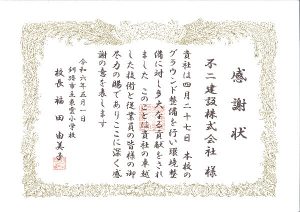 感謝状
不二建設株式会社 様
貴社は四月二十七日 本校の
グラウンド整備を行い環境整
備に対し多大なる貢献をされ
ました このことは貴社の卓越
した技術と従業員の皆様の御
尽力の賜でありここに深く感
謝の意を表します
令和六年五月一日
釧路市立東雲小学校
校長 福田 由美子